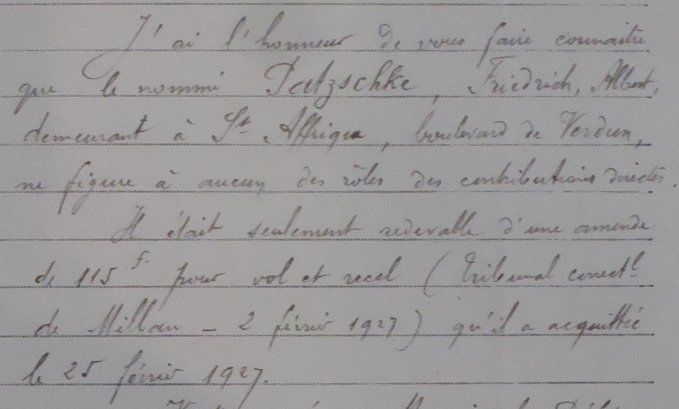 J'ai l'honneur de vous faire connaître
que le nommé Patzschke, Friedrich, Albert,
demeurant à St Affrique, boulevard de Verdun,
ne figure à aucun des rôles des contributions directes.
Il était seulement redevable d'une amende
de 115 f. pour vol et recel (Tribunal correctl
de Millau – 2 février 1927) qu'il a acquittée
le 25 février 1927.